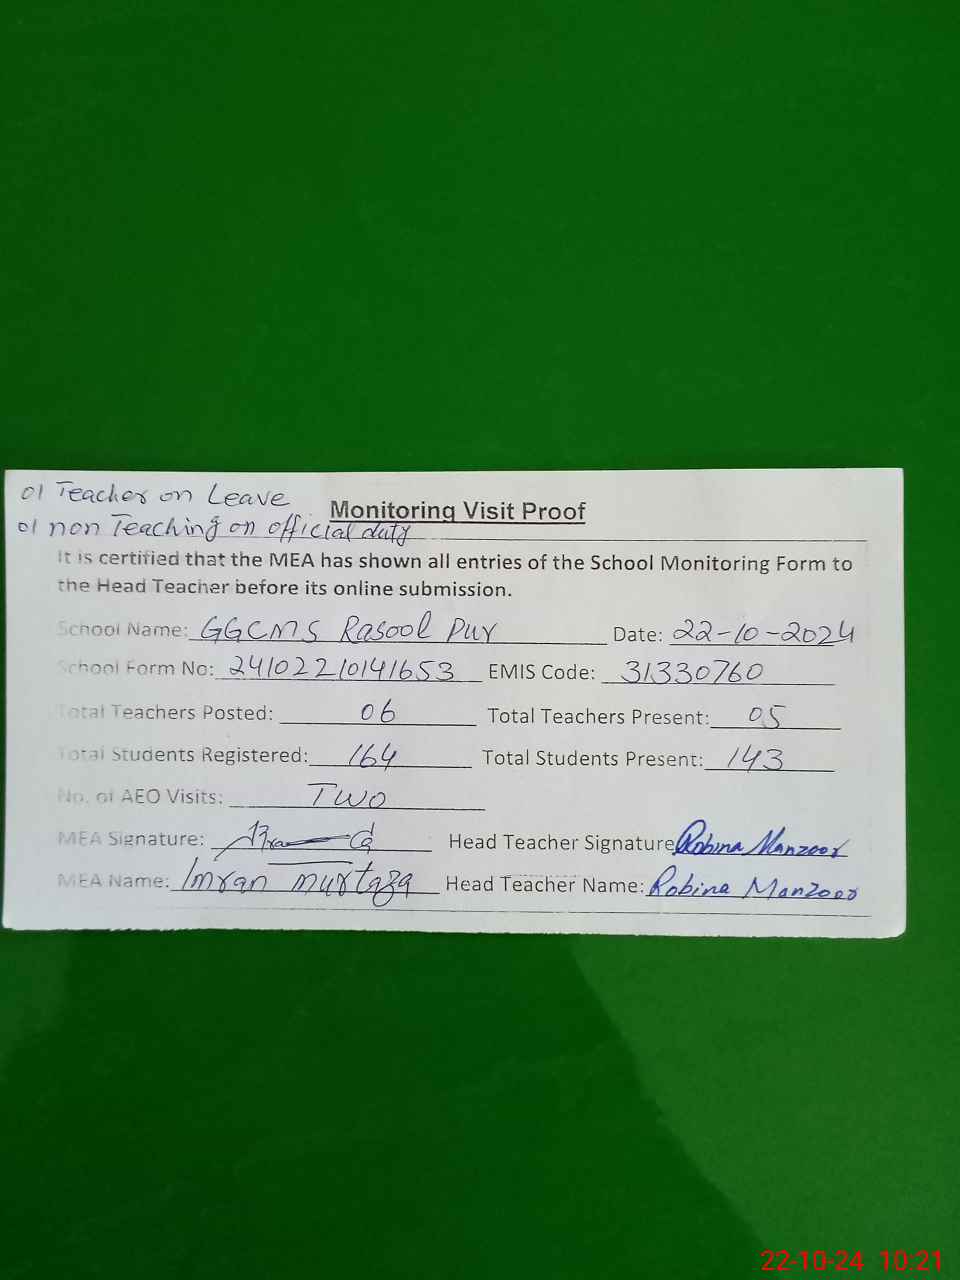 01 Teacher on Leave
01 non Teaching on official duty
Monitoring Visit Proof
It is certified that the MEA has shown all entries of the School Monitoring Form to
the Head Teacher before its online submission.
School Name: GGCMS Rasool Pur Date: 22-10-2024
School Form No: 24102210141653 EMIS Code: 31330760
Total Teachers Posted: 06 Total Teachers Present: 05
Total Students Registered: 164 Total Students Present: 143
No. of AEO Visits: Two
MEA Signature: Head Teacher Signature Robina Manzoor
MEA Name: Imran murtaza Head Teacher Name: Robina Manzoor
22-10-24 10:21